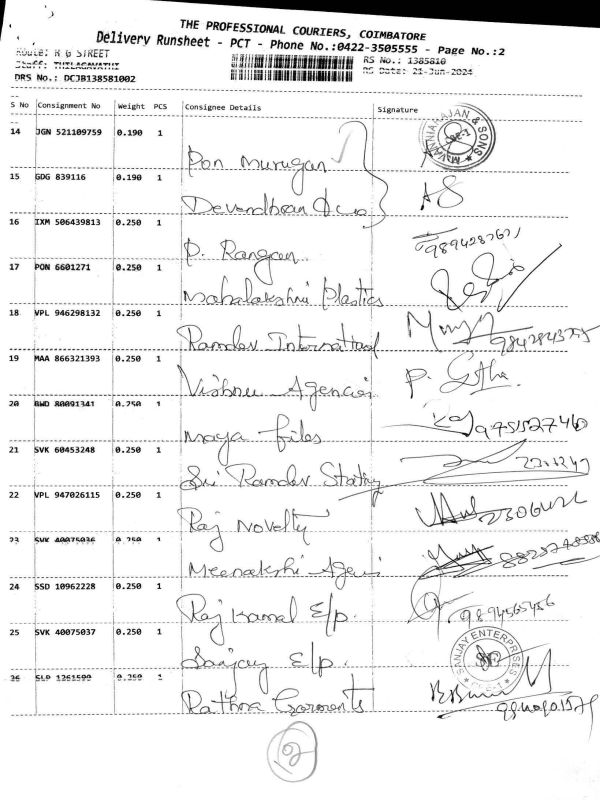 THE PROFESSIONAL COURIERS, COIMBATORE
Delivery Runsheet - PCT - Phone No.:0422-3505555 - Page No.:2
Route: R G STREET
RS No.: 1385810
Staff: THILAGAVATHI
RS Date: 21-Jun-2024
DRS No.: DCJB138581002
S No Consignment No Weight PCS Consignee Details Signature
14 JGN 521109759 0.190 1
Pon Murugan
15 GDG 839116 0.190 1
Devandhran & co
16 IXM 506439813 0.250 1
P. Rangan
17 PON 6601271 0.250 1
Mahalakshmi Plastics
18 VPL 946298132 0.250 1
Ramdev International
19 MAA 866321393 0.250 1
Vishnu Agencies P. Githa.
20 BWD 80091341 0.250 1
Maya files
21 SVK 60453248 0.250 1
Sri Ramdev
22 VPL 947026115 0.250 1
Raj Novelty
23 SVK 40075036 0.250 1
Meenakshi
24 SSD 10962228 0.250 1
Raj Kamal E/p. 9894565456
25 SVK 40075037 0.250 1
Sanjay E/p.
SANJAY ENTERPRISES
26 SLP 1261599 0.250 1
Rathna Garments
2